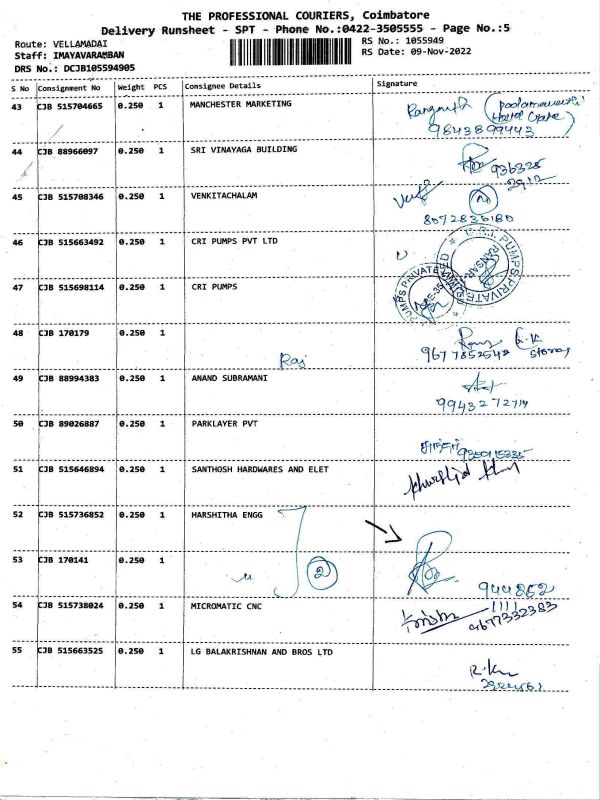 THE PROFESSIONAL COURIERS, Coimbatore
Delivery Runsheet - SPT - Phone No.:0422-3505555 - Page No.:5
Route: VELLAMADAI
RS No.: 1055949
Staff: IMAYAVARAMBAN
RS Date: 09-Nov-2022
DRS No.: DCJB105594905
S No Consignment No Weight PCS Consignee Details Signature
43 CJB 515704665 0.250 1 MANCHESTER MARKETING
9843899442
44 CJB 88966097 0.250 1 SRI VINAYAGA BUILDING
45 CJB 515708346 0.250 1 VENKITACHALAM
8072836180
46 CJB 515663492 0.250 1 CRI PUMPS PVT LTD
47 CJB 515698114 0.250 1 CRI PUMPS
48 CJB 170179 0.250 1
Raj
9677852542
49 CJB 88994383 0.250 1 ANAND SUBRAMANI
9943272714
50 CJB 89026887 0.250 1 PARKLAYER PVT
51 CJB 515646894 0.250 1 SANTHOSH HARDWARES AND ELET
52 CJB 515736852 0.250 1 HARSHITHA ENGG
53 CJB 170141 0.250 1
2
944862
54 CJB 515738024 0.250 1 MICROMATIC CNC
9677332383
55 CJB 515663525 0.250 1 LG BALAKRISHNAN AND BROS LTD